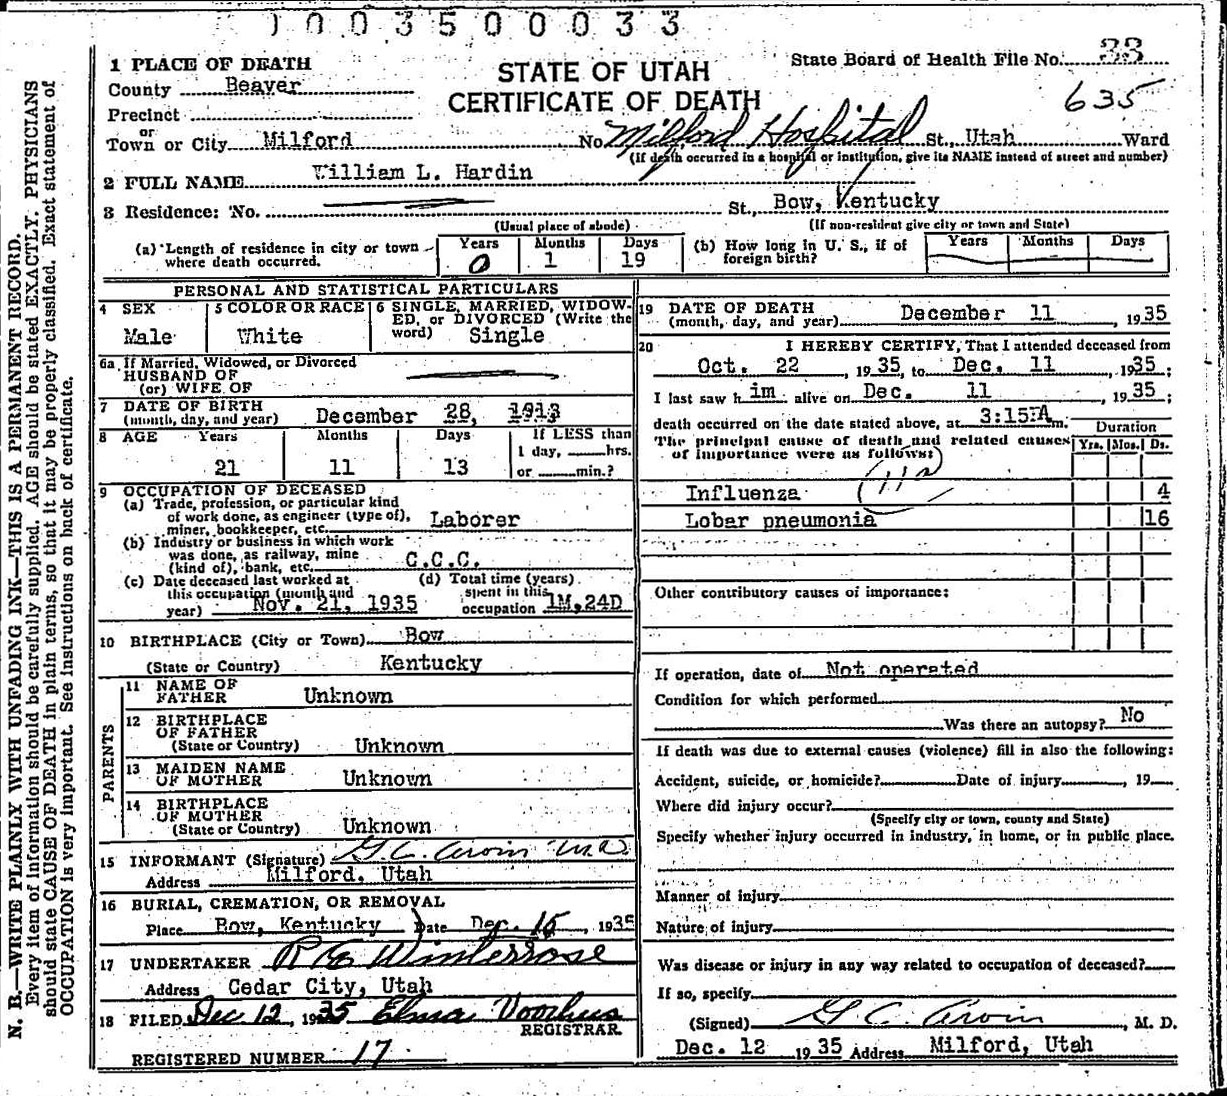 1003500033
State Board of Health File No. 33
635
STATE OF UTAH
CERTIFICATE OF DEATH
1 PLACE OF DEATH
County Beaver
Precinct
or
Town or City Milford No Milford Hospital St., Utah Ward
(If death occurred in a hospital or institution, give its NAME instead of street and number)
2 FULL NAME William L. Hardin
3 Residence: No. St., Bow, Kentucky
(Usual place of abode) (If non-resident give city or town and State)
(a) Length of residence in city or town where death occurred. Years 0 Months 1 Days 19 (b) How long in U. S., if of foreign birth? Years Months Days
PERSONAL AND STATISTICAL PARTICULARS
4 SEX Male
5 COLOR OR RACE White
6 SINGLE, MARRIED, WIDOWED, or DIVORCED (Write the word) Single
6a If Married, Widowed, or Divorced
HUSBAND OF
(or) WIFE OF
7 DATE OF BIRTH
(month, day, and year) December 28, 1913
8 AGE Years Months Days If LESS than
1 day, hrs.
21 11 13 or min.?
9 OCCUPATION OF DECEASED
(a) Trade, profession, or particular kind
of work done, as engineer (type of),
miner, bookkeeper, etc. Laborer
(b) Industry or business in which work
was done, as railway, mine
(kind of), bank, etc. C.C.C.
(c) Date deceased last worked at
this occupation (month and
year) Nov. 21, 1935
(d) Total time (years)
spent in this
occupation 1M,24D
10 BIRTHPLACE (City or Town) Bow
(State or Country) Kentucky
PARENTS
11 NAME OF
FATHER Unknown
12 BIRTHPLACE
OF FATHER
(State or Country) Unknown
13 MAIDEN NAME
OF MOTHER Unknown
14 BIRTHPLACE
OF MOTHER
(State or Country) Unknown
15 INFORMANT (Signature) G C. Arvin M.D.
Address Milford, Utah
16 BURIAL, CREMATION, OR REMOVAL
Place Bow, Kentucky Date Dec. 15, 1935
17 UNDERTAKER R E Winterrose
Address Cedar City, Utah
18 FILED Dec 12, 1935 Elma Voorhus
REGISTRAR.
REGISTERED NUMBER 17
19 DATE OF DEATH
(month, day, and year) December 11, 1935
20 I HEREBY CERTIFY, That I attended deceased from
Oct. 22, 1935, to Dec. 11, 1935;
I last saw him alive on Dec. 11, 1935;
death occurred on the date stated above, at 3:15 A m.
The principal cause of death and related causes
of importance were as follows:
Duration
Yrs. Mos. Ds.
Influenza 4
Lobar pneumonia 16
Other contributory causes of importance:
If operation, date of Not operated
Condition for which performed
Was there an autopsy? No
If death was due to external causes (violence) fill in also the following:
Accident, suicide, or homicide? Date of injury, 19
Where did injury occur?
(Specify city or town, county and State)
Specify whether injury occurred in industry, in home, or in public place.
Manner of injury
Nature of injury
Was disease or injury in any way related to occupation of deceased?
If so, specify
(Signed) G C. Arvin, M. D.
Dec. 12 1935 Address Milford, Utah
N. B.—WRITE PLAINLY WITH UNFADING INK—THIS IS A PERMANENT RECORD.
Every item of information should be carefully supplied. AGE should be stated EXACTLY. PHYSICIANS
should state CAUSE OF DEATH in plain terms, so that it may be properly classified. Exact statement of
OCCUPATION is very important. See instructions on back of certificate.